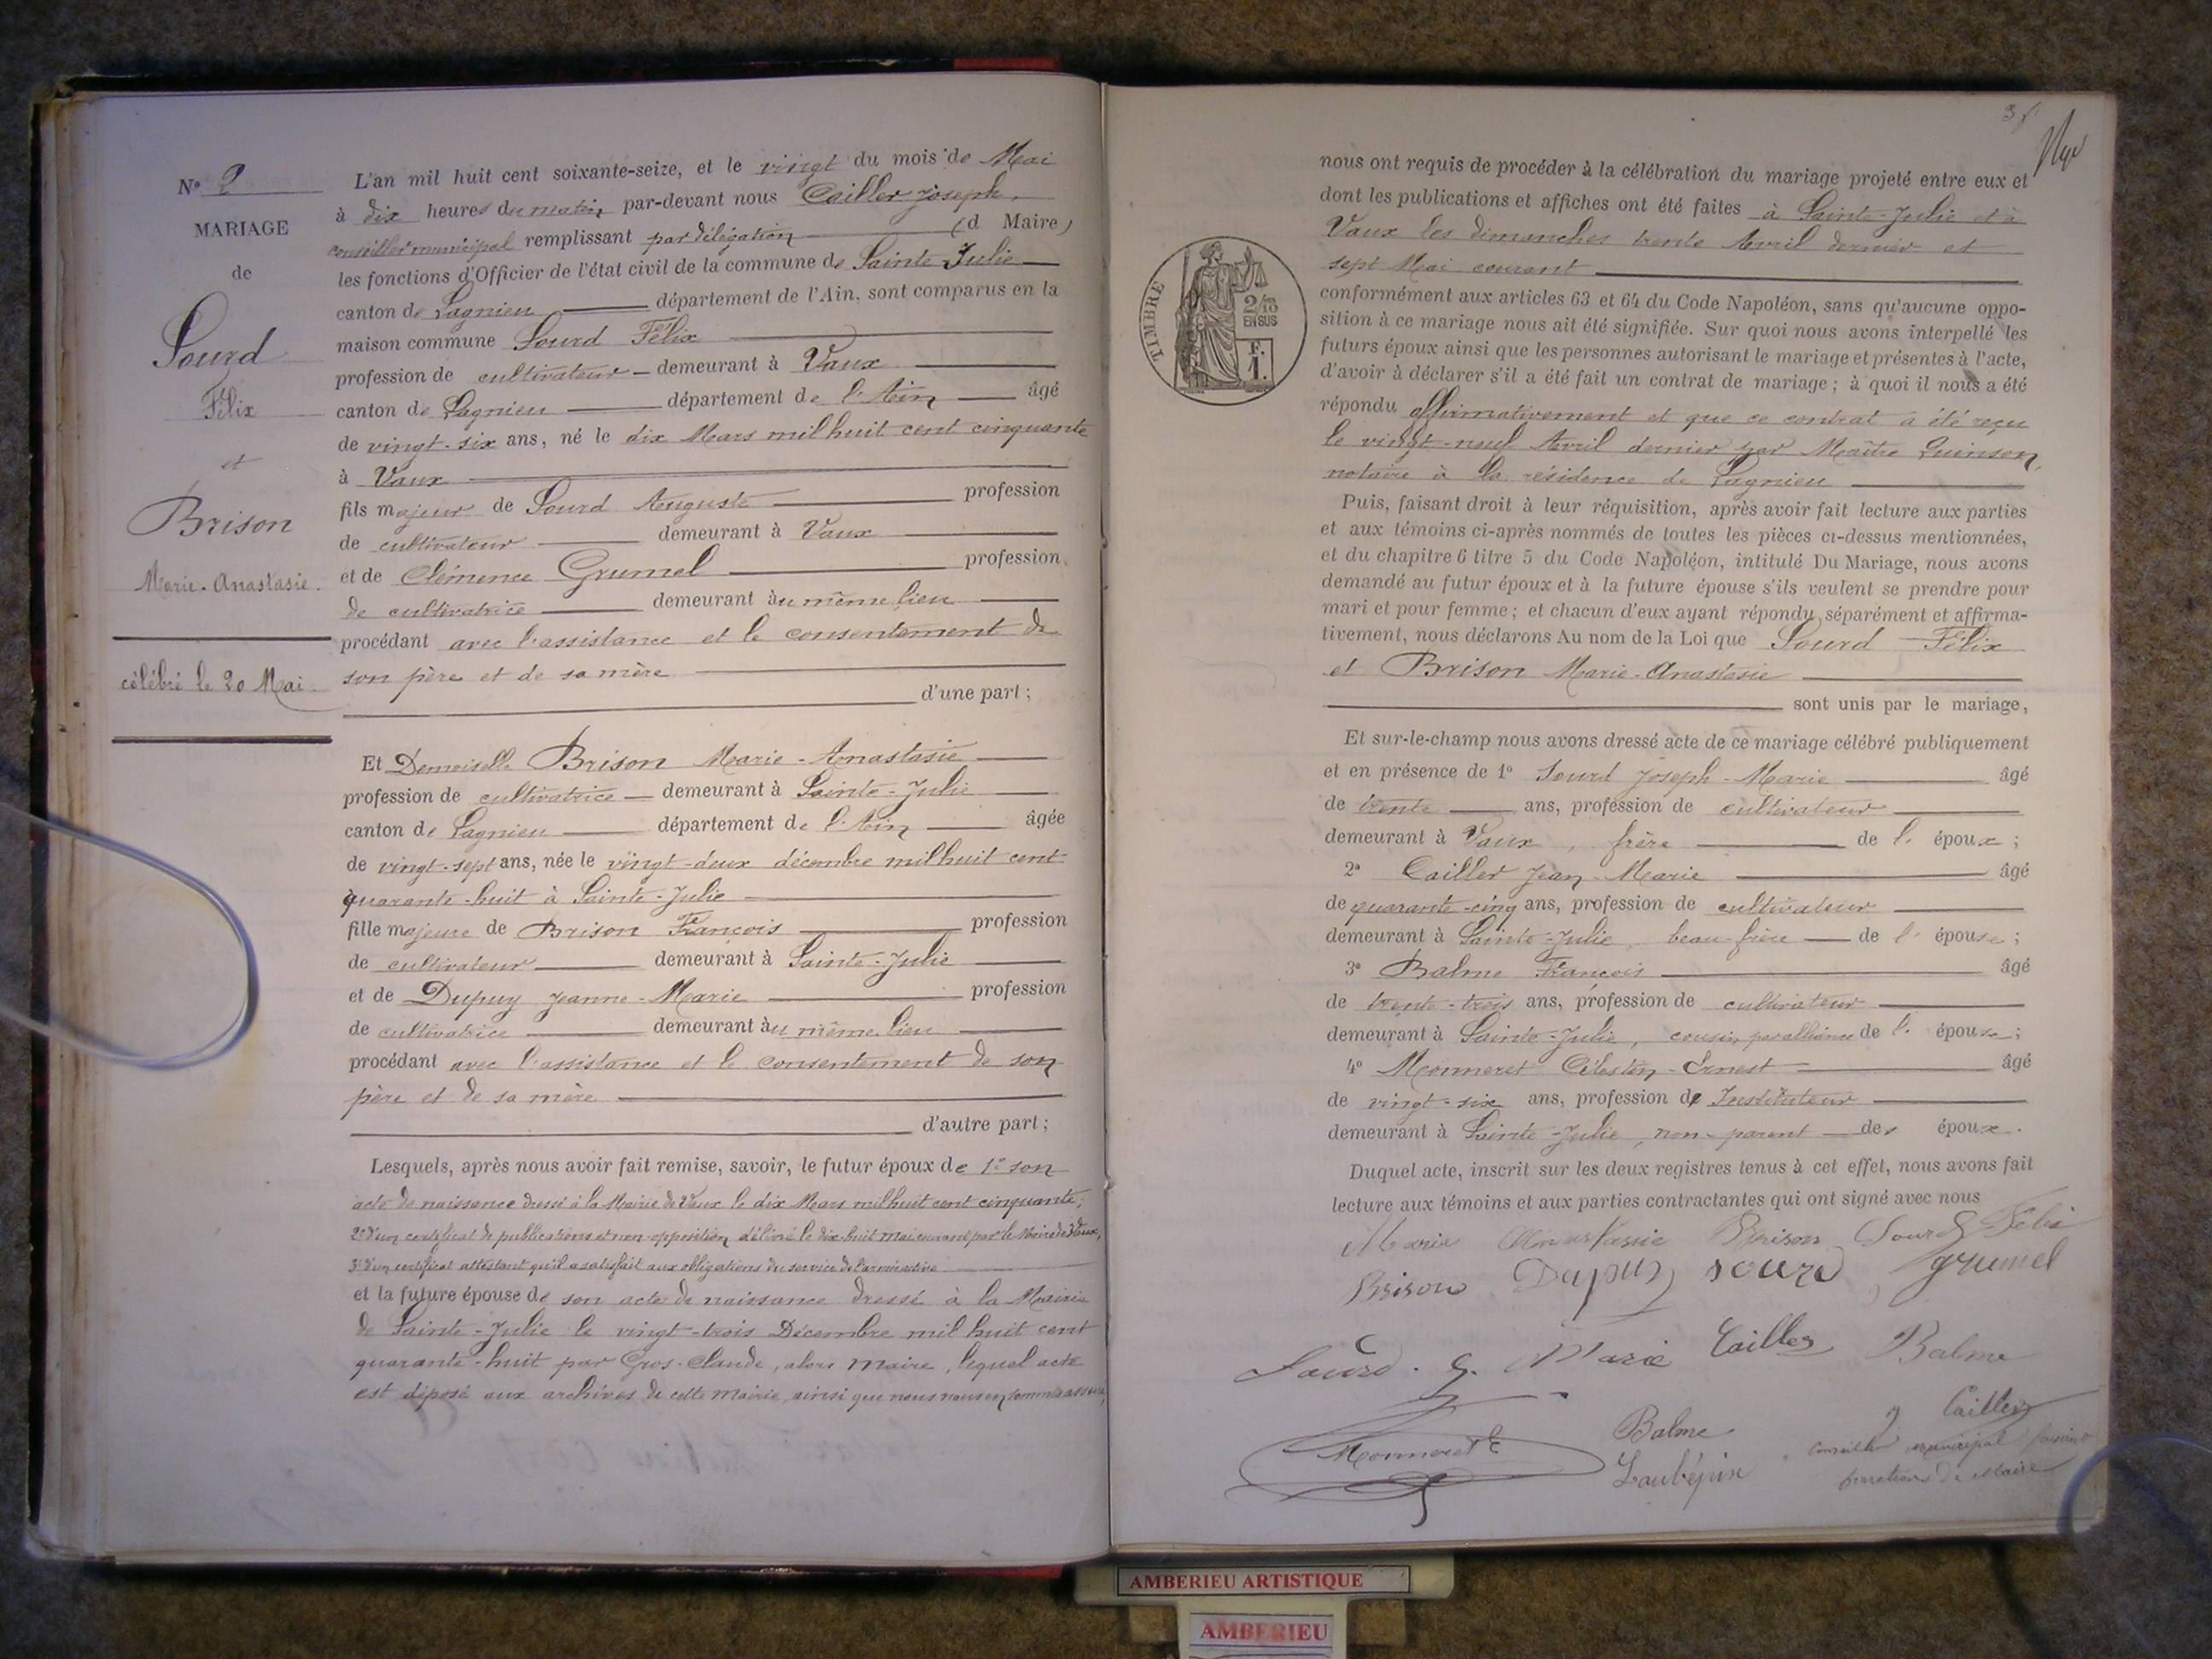 N° 2
MARIAGE
de
Sourd
Félix
et
Brison
Marie-Anastasie.
célébré le 20 Mai.
L'an mil huit cent soixante-seize, et le vingt du mois de Mai
à dix heures du matin par-devant nous Cailler Joseph,
conseiller municipal remplissant par délégation (d Maire)
les fonctions d'Officier de l'état civil de la commune de Sainte Julie
canton de Lagnieu département de l'Ain, sont comparus en la
maison commune Sourd Félix
profession de cultivateur demeurant à Vaux
canton de Lagnieu département de l'Ain âgé
de vingt-six ans, né le dix Mars mil huit cent cinquante
à Vaux
fils majeur de Sourd Auguste profession
de cultivateur demeurant à Vaux
et de Clémence Grumel profession
de cultivatrice demeurant au même lieu
procédant avec l'assistance et le consentement de
son père et de sa mère
d'une part;
Et Demoiselle Brison Marie-Anastasie
profession de cultivatrice demeurant à Sainte-Julie
canton de Lagnieu département de l'Ain âgée
de vingt-sept ans, née le vingt-deux décembre mil huit cent
quarante-huit à Sainte-Julie
fille majeure de Brison François profession
de cultivateur demeurant à Sainte-Julie
et de Dupuy Jeanne-Marie profession
de cultivatrice demeurant au même lieu
procédant avec l'assistance et le consentement de son
père et de sa mère
d'autre part;
Lesquels, après nous avoir fait remise, savoir, le futur époux de 1° son
acte de naissance dressé à la Mairie de Vaux le dix Mars mil huit cent cinquante;
2° d'un certificat de publications et non-opposition délivré le dix-huit mai courant par le Maire de Vaux,
3° d'un certificat attestant qu'il a satisfait aux obligations du service de l'armée active
et la future épouse de son acte de naissance dressé à la Mairie
de Sainte-Julie le vingt-trois Décembre mil huit cent
quarante-huit par Gros-Claude, alors maire, lequel acte
est déposé aux archives de cette mairie, ainsi que nous nous en sommes assuré,
nous ont requis de procéder à la célébration du mariage projeté entre eux et
dont les publications et affiches ont été faites à Sainte-Julie et à
Vaux les dimanches trente Avril dernier et
sept Mai courant
TIMBRE
2/10
EN SUS
F.
1.
conformément aux articles 63 et 64 du Code Napoléon, sans qu'aucune oppo-
sition à ce mariage nous ait été signifiée. Sur quoi nous avons interpellé les
futurs époux ainsi que les personnes autorisant le mariage et présentes à l'acte,
d'avoir à déclarer s'il a été fait un contrat de mariage; à quoi il nous a été
répondu affirmativement et que ce contrat a été reçu
le vingt-neuf Avril dernier par Maître Quinson,
notaire à la résidence de Lagnieu
Puis, faisant droit à leur réquisition, après avoir fait lecture aux parties
et aux témoins ci-après nommés de toutes les pièces ci-dessus mentionnées,
et du chapitre 6 titre 5 du Code Napoléon, intitulé Du Mariage, nous avons
demandé au futur époux et à la future épouse s'ils veulent se prendre pour
mari et pour femme; et chacun d'eux ayant répondu séparément et affirma-
tivement, nous déclarons Au nom de la Loi que Sourd Félix
et Brison Marie-Anastasie
sont unis par le mariage,
Et sur-le-champ nous avons dressé acte de ce mariage célébré publiquement
et en présence de 1° Sourd Joseph-Marie âgé
de trente ans, profession de cultivateur
demeurant à Vaux, frère de l' époux;
2° Cailler Jean-Marie âgé
de quarante-cinq ans, profession de cultivateur
demeurant à Sainte-Julie, beau-frère de l' épouse;
3° Balme François âgé
de trente-trois ans, profession de cultivateur
demeurant à Sainte-Julie, cousin par alliance de l' épouse;
4° Monneret Célestin-Ernest âgé
de vingt-six ans, profession de Instituteur
demeurant à Sainte-Julie, non-parent des époux.
Duquel acte, inscrit sur les deux registres tenus à cet effet, nous avons fait
lecture aux témoins et aux parties contractantes qui ont signé avec nous
Marie Anastasie Brison Sourd Félix
Brison Dupuy sourd grumel
Sourd . J. Marie Cailler Balme
Monneret Balme J Cailler
Laubépin conseiller municipal faisant
fonctions de Maire
AMBERIEU ARTISTIQUE
AMBERIEU